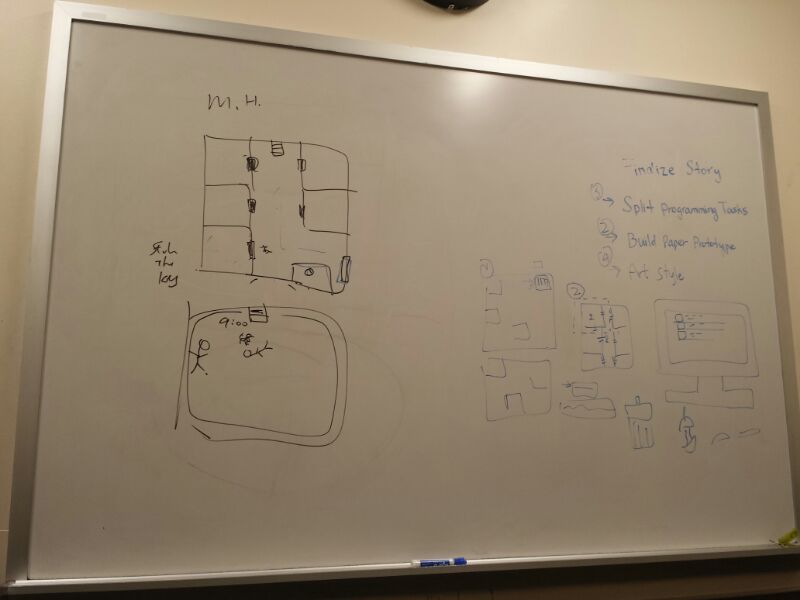 M.H.
the
key
9:00
Finalize Story
Split Programming Tasks
2
Build Paper Prototype
Art Style
2